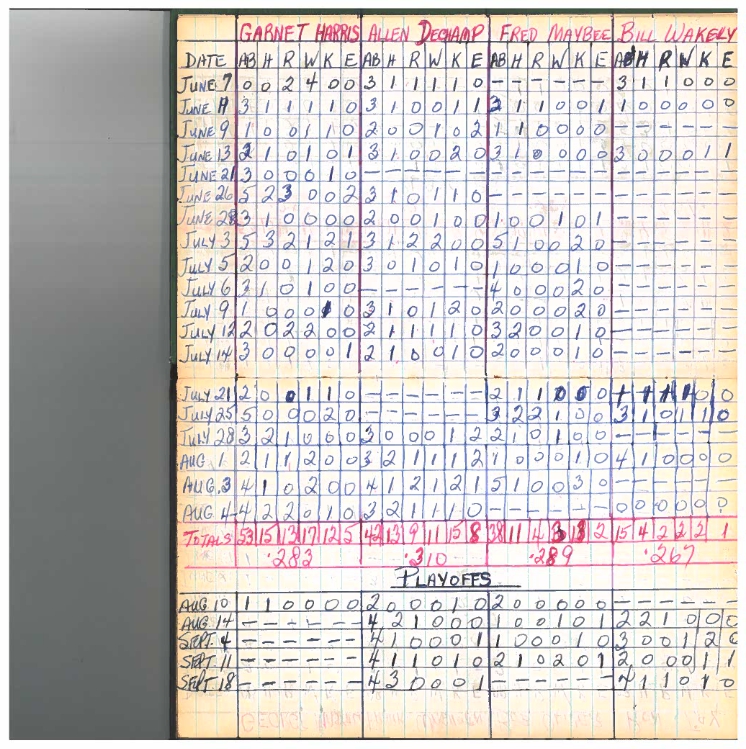 GARNET HARRIS ALLEN DECHAMP FRED MAYBEE BILL WAKELY
DATE AB H R W K E AB H R W K E AB H R W K E AB H R W K E
JUNE 7 0 0 2 4 0 0 3 1 1 1 1 0 - - - - - - 3 1 1 0 0 0
JUNE 3 1 1 1 1 0 3 1 0 0 1 1 2 1 1 0 0 1 1 0 0 0 0 0
JUNE 9 1 0 0 1 1 0 2 0 0 1 0 2 1 1 0 0 0 0 - - - - - -
JUNE 13 2 1 0 1 0 1 3 1 0 0 2 0 3 1 0 0 0 0 3 0 0 0 1 1
JUNE 21 3 0 0 0 1 0 - - - - - - - - - - - - - - - - - -
JUNE 26 5 2 3 0 0 2 3 1 0 1 1 0 - - - - - - - - - - - -
JUNE 28 3 1 0 0 0 0 2 0 0 1 0 0 1 0 0 1 0 1 - - - - - -
JULY 3 5 3 2 1 2 1 3 1 2 2 0 0 5 1 0 0 2 0 - - - - - -
JULY 5 2 0 0 1 2 0 3 0 1 0 1 0 1 0 0 0 1 0 - - - - - -
JULY 6 3 1 0 1 0 0 - - - - - - 4 0 0 0 2 0 - - - - - -
JULY 9 1 0 0 0 1 0 3 1 0 1 2 0 2 0 0 0 2 0 - - - - - -
JULY 12 2 0 2 2 0 0 2 1 1 1 1 0 3 2 0 0 1 0 - - - - - -
JULY 14 3 0 0 0 0 1 2 1 0 0 1 0 2 0 0 0 1 0 - - - - - -
JULY 21 2 0 0 1 1 0 - - - - - - 2 1 1 0 0 0 0 0
JULY 25 5 0 0 0 2 0 - - - - - - 3 2 2 1 0 0 3 1 0 1 1 0
JULY 28 3 2 1 0 0 0 3 0 0 0 1 2 2 1 0 1 0 0 - - - - - -
AUG. 1 2 1 1 2 0 0 3 2 1 1 1 2 1 0 0 0 1 0 4 1 0 0 0 0
AUG. 3 4 1 0 2 0 0 4 1 2 1 2 1 5 1 0 0 3 0 - - - - - -
AUG 4 4 2 2 0 1 0 3 2 1 1 1 0 - - - - - - 0 0 0 0 0 0
TOTALS 53 15 13 17 12 5 42 13 9 11 15 8 38 11 4 3 13 2 15 4 2 2 2 1
.283 .310 .289 .267
PLAYOFFS
AUG 10 1 1 0 0 0 0 2 0 0 0 1 0 2 0 0 0 0 0 - - - - - -
AUG 14 - - - - - - 4 2 1 0 0 0 1 0 0 1 0 1 2 2 1 0 0 0
SEPT. 4 - - - - - - 4 1 0 0 0 1 1 0 0 0 1 0 3 0 0 1 2 0
SEPT. 11 - - - - - - 4 1 1 0 1 0 2 1 0 2 0 1 2 0 0 0 1 1
SEPT 18 - - - - - - 4 3 0 0 0 1 - - - - - - 4 1 1 0 1 0